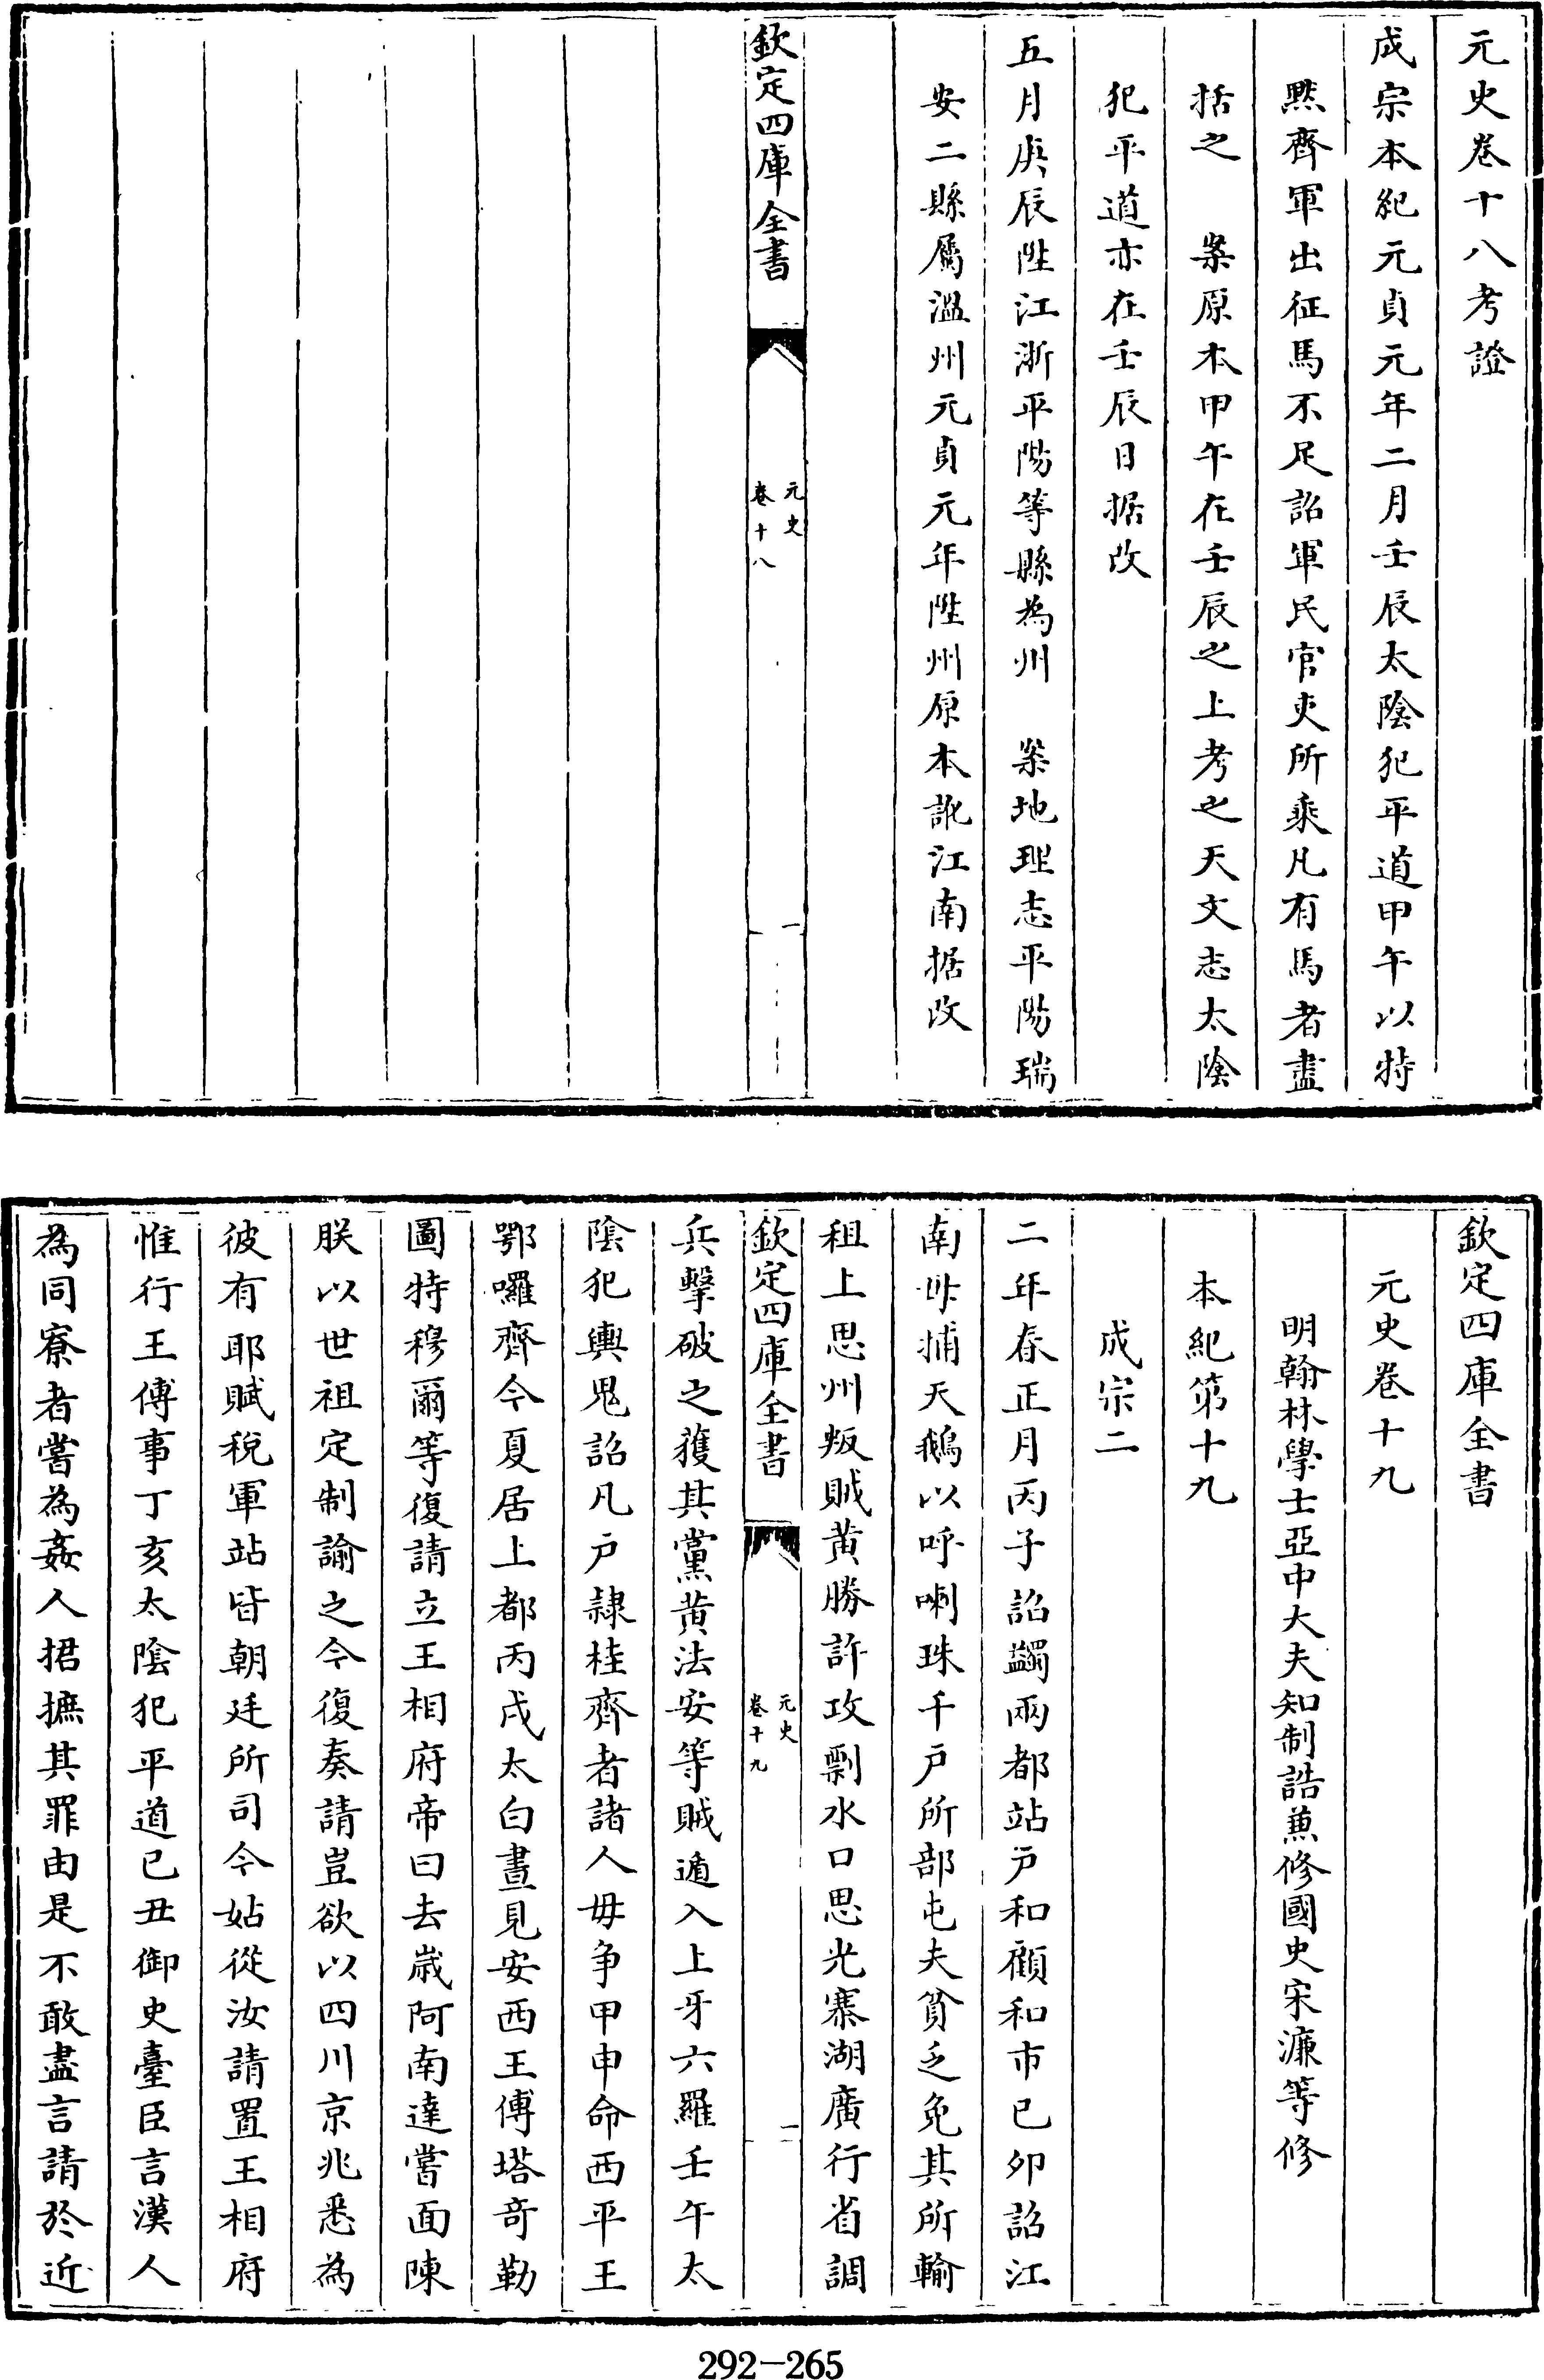 元史卷十八考證
成宗本紀元貞元年二月壬辰太陰犯平道甲午以特
黙齊軍出征馬不足詔軍民官吏所乘凡有馬者盡
括之　案原本甲午在壬辰之上考之天文志太陰
犯平道亦在壬辰日据改
五月庚辰陞江浙平陽等縣為州　案地理志平陽瑞
安二縣屬溫州元貞元年陞州原本訛江南据改
欽定四庫全書
元史
卷十八
一
欽定四庫全書
元史卷十九
明翰林學士亞中大夫知制誥兼修國史宋濂等修
本紀第十九
成宗二
二年春正月丙子詔蠲兩都站戸和顧和市已卯詔江
南毋捕天鵝以呼喇珠千戸所部屯夫貧乏免其所輸
租上思州叛賊黄勝許攻剽水口思光寨湖廣行省調
欽定四庫全書
元史
卷十九
一
兵擊破之獲其黨黄法安等賊遁入上牙六羅壬午太
陰犯輿鬼詔凡戸隷桂齊者諸人毋争甲申命西平王
鄂囉齊今夏居上都丙戌太白晝見安西王傅塔竒勒
圖特穆爾等復請立王相府帝曰去歳阿南達嘗面陳
朕以世祖定制諭之今復奏請豈欲以四川京兆悉為
彼有耶賦税軍站皆朝廷所司今姑從汝請置王相府
惟行王傅事丁亥太陰犯平道已丑御史臺臣言漢人
為同寮者嘗為姦人捃摭其罪由是不敢盡言請於近
292-265